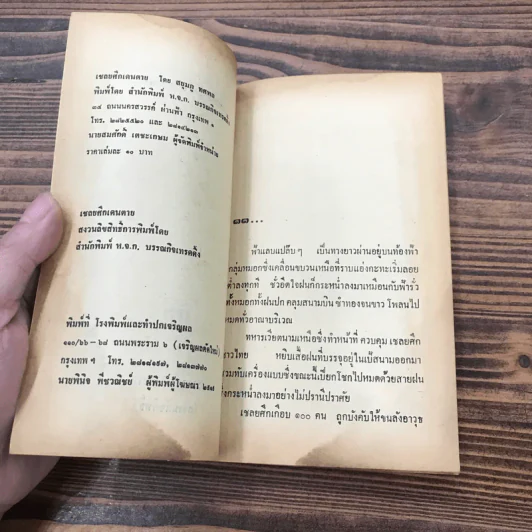 เชลยศึกเดนตาย โดย สยุมภู ทศพล
พิมพ์โดย สำนักพิมพ์ ห.จ.ก. บรรณกิจเทรดดิ้ง
๓๔ ถนนนครสวรรค์ ผ่านฟ้า กรุงเทพ ฯ
โทร. ๒๘๒๕๕๒๐ และ ๒๘๑๔๒๑๓
นายสมศักดิ์ เตชะเกษม ผู้จัดพิมพ์จำหน่าย
ราคาเล่มละ ๑๐ บาท
เชลยศึกเดนตาย
สงวนลิขสิทธิ์การพิมพ์โดย
สำนักพิมพ์ ห.จ.ก. บรรณกิจเทรดดิ้ง
พิมพ์ที่ โรงพิมพ์และทำปกเจริญผล
ถนนพระราม ๖ (เจริญผลตัดใหม่)
กรุงเทพ ฯ โทร. ๒๘๑๘๑๕๗, ๒๘๑๓๗๗๐
นายพินิจ พีชวณิชย์ ผู้พิมพ์ผู้โฆษณา
๑๑...
ฟ้าแลบแปล๊บ ๆ เป็นทางยาวผ่านอยู่บนท้องฟ้า
กลุ่มหมอกซึ่งเคลื่อนขบวนเหนือที่ราบแอ่งกะทะเริ่มลอย
ต่ำลงทุกที ชั่วอึดใจฝนก็กระหน่ำลงมาเหมือนกับฟ้ารั่ว
ทั้งหมอกทั้งฝนปกคลุมสนามบิน ซำทองจนขาว โพลนไป
หมดทั่วอาณาบริเวณ
ทหารเวียดนามเหนือซึ่งทำหน้าที่ ควบคุม เชลยศึก
ชาวไทย หยิบเสื้อฝนที่บรรจุอยู่ในเป้สนามออกมา
สวมทับเครื่องแบบซึ่งขณะนี้เปียกโชกไปหมดด้วยสายฝน
ซึ่งกระหน่ำลงมาอย่างไม่ปรานีปราศัย
เชลยศึกเกือบ ๑๐๐ คน ถูกบังคับให้ขนลังอาวุธ